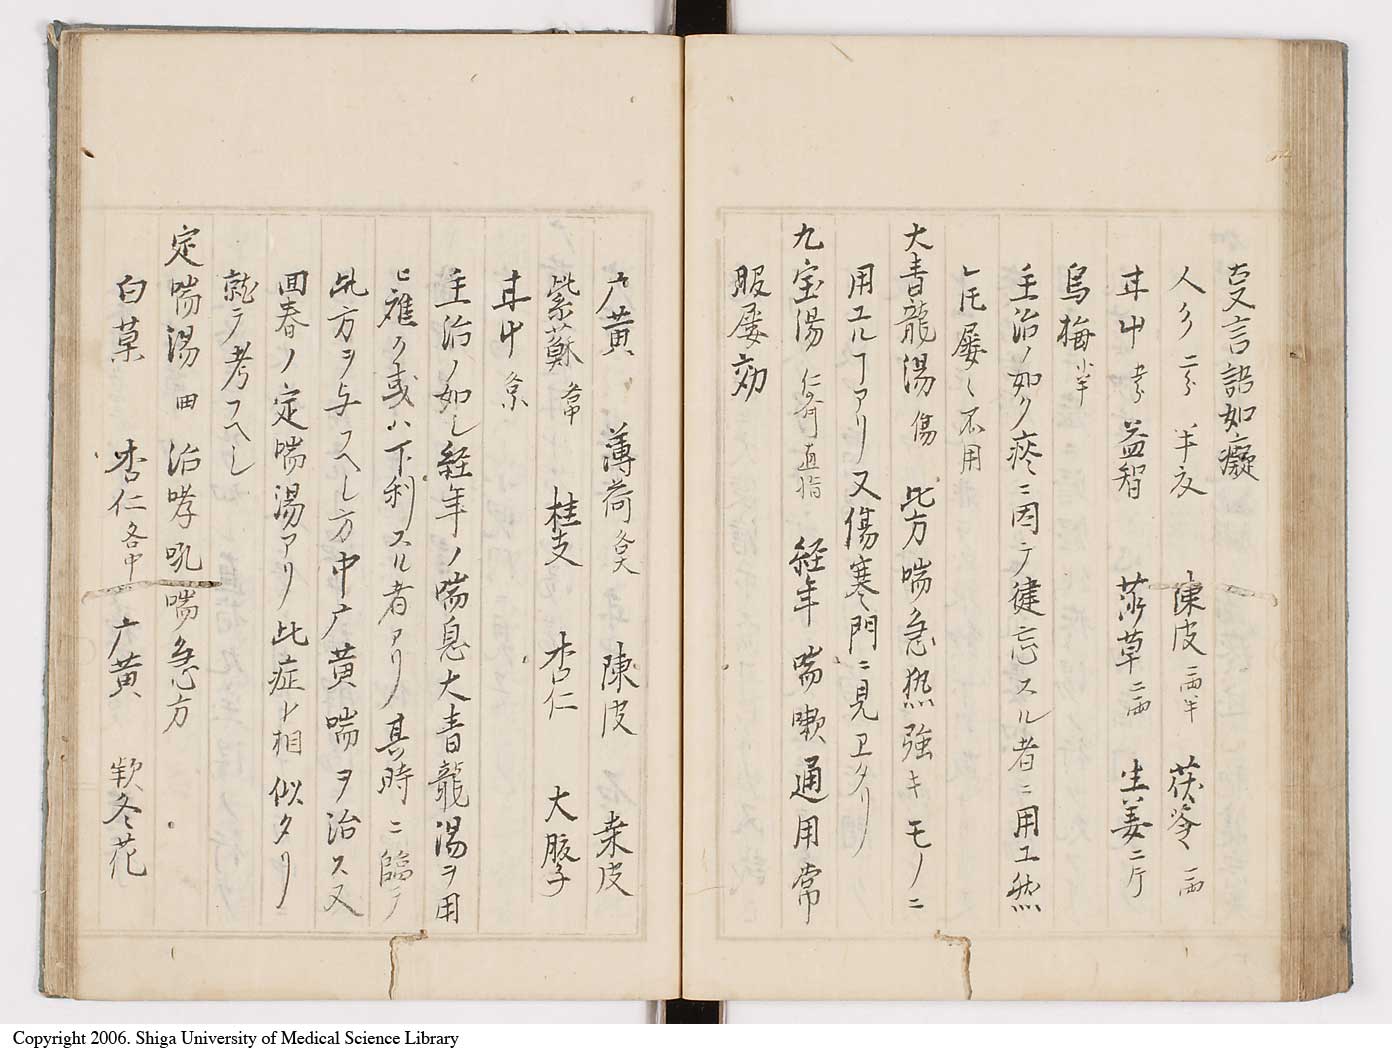 変言語如癡
人参 二分 半夏 陳皮 二両半 茯苓 一両
甘草 益智 莎草 二両 生姜 二片
烏梅 半
主治ノ如ク痰ニ因テ健忘スル者ニ用ユ然
𪜈屡〻不用
大青龍湯 傷 此方喘急熱強キモノニ
用ユルヿアリ又傷寒門ニ見ワタリ
九宝湯 直指 経年喘嗽通用常
服屡効
广黄 薄荷 各大 陳皮 桒皮
紫蘇 各中 桂支 杏仁 大腹子
甘中
主治ノ如シ経年ノ喘息大青龍湯ヲ用
ヒ難ク或ハ下利スル者アリ其時ニ臨テ
此方ヲ与フヘし方中广黄喘ヲ治ス又
回春ノ定喘湯アリ此症ト相似タリ
就テ考フヘし
定喘湯 回 治哮吼喘急方
白菓 杏仁 各中 广黄 欵冬花
Copyright 2006. Shiga University of Medical Science Library